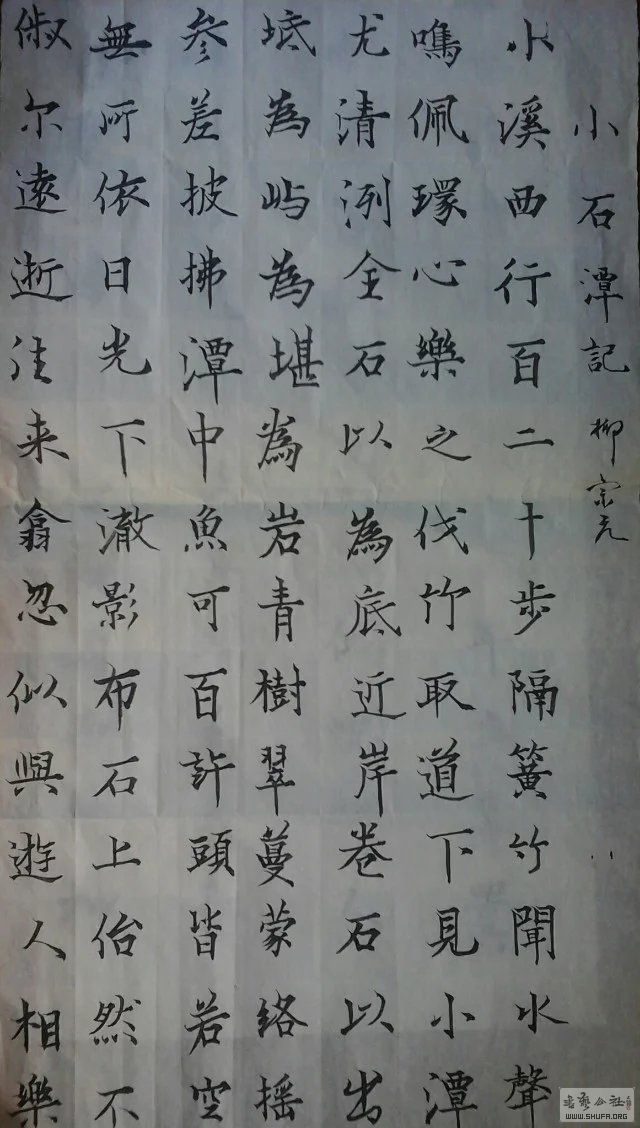 小石潭記 柳宗元
小溪西行百二十步隔簧竹聞水聲
鳴佩環心樂之伐竹取道下見小潭
尤清洌全石以為底近岸卷石以出
坻為屿為堪為岩青樹翠蔓蒙絡摇
参差披拂潭中魚可百許頭皆若空
無所依日光下澈影布石上佁然不
俶尔遠逝往来翕忽似與遊人相樂
书艺公社
WWW.SHUFA.ORG